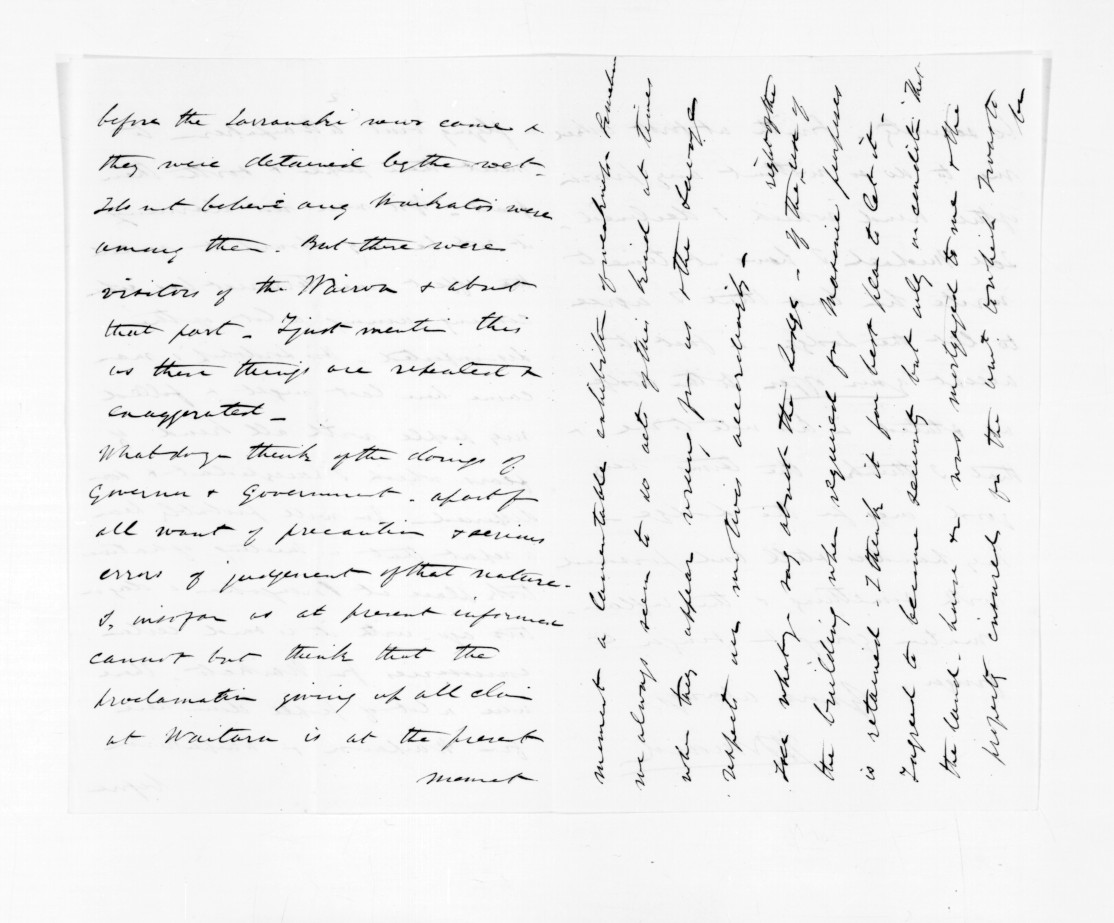 before the Tarranaki news came &
they were detained by the wet.
I do not believe any Waikatos were
among them. But there were
visitors of the Wairoa & about
that part - I just mention this
as these things are repeated &
exaggerated -
What do you think of the doings of
Governor & Government. apart fr
all want of precaution & serious
errors of judgement of that nature -
I, insofar as at present informed
cannot but think that the
proclamation giving up all claim
at Waitara is at the present
moment
moment a lamentable exhibition of weakness. Somehow
we always seem to do acts of this kind at times
when they appear wrong for us & the
respects our motives accordingly -
I see what you say about the Lodge - If the use of
right of the
the building when required for Masonic purposes
is retained - I think it far best plan to let it -
I agreed to become security but only on condition that
the land - house &c was mortgaged to me & the
property insured for the amt to which I was to
be